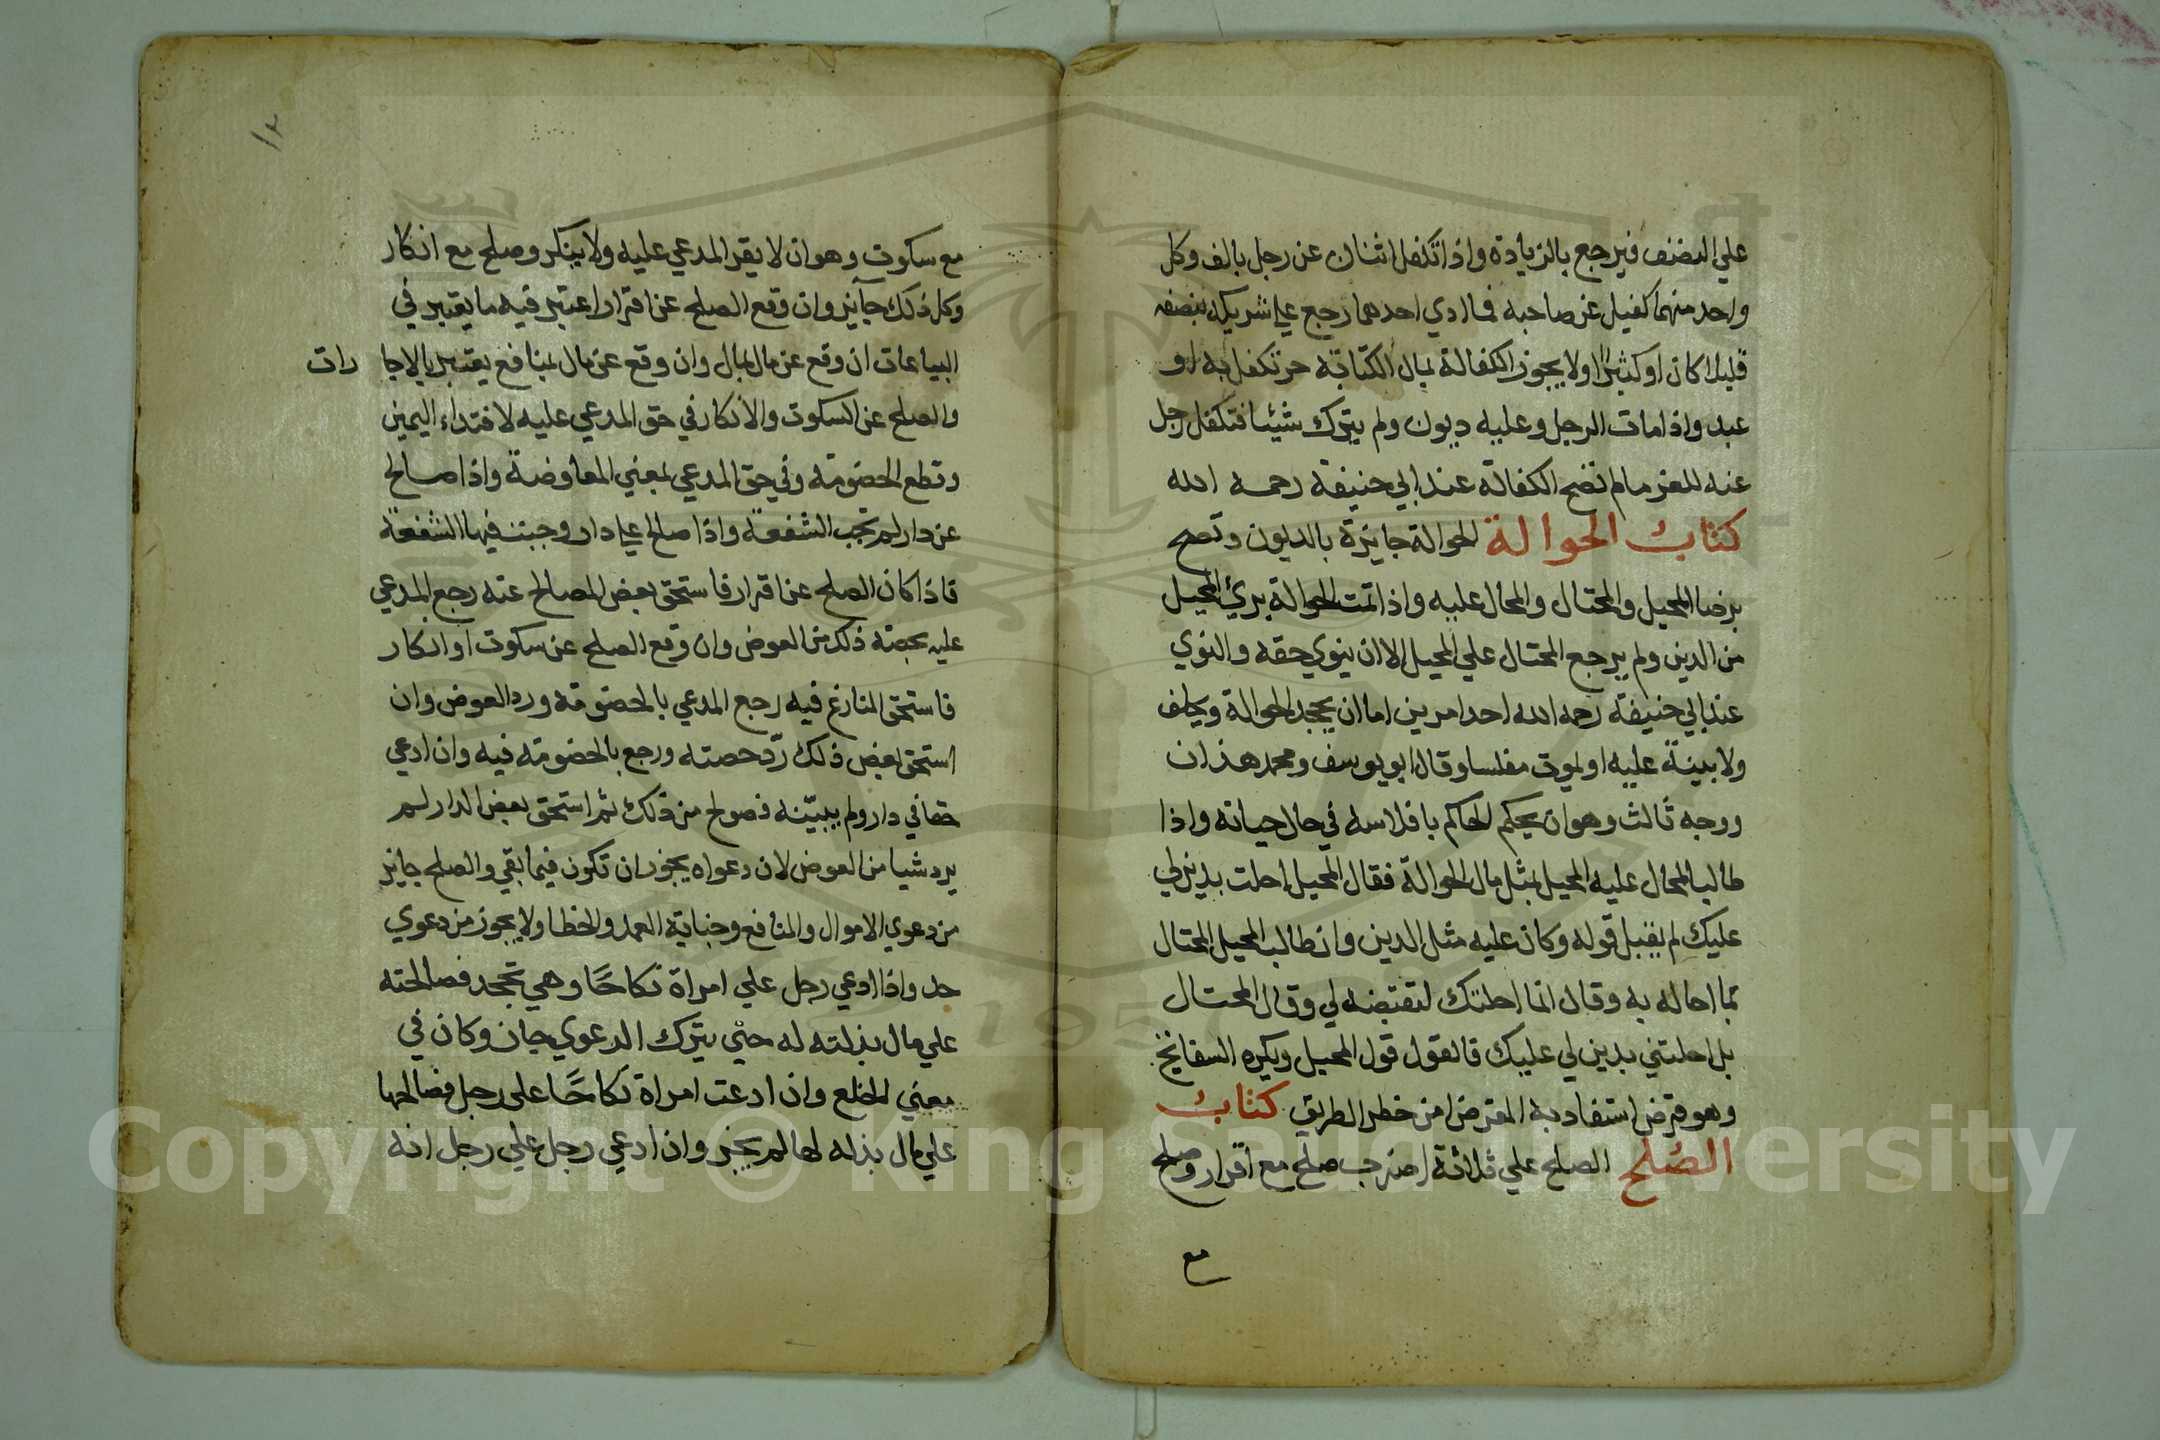 علي النصف فيرجع بالزيادة واذا تكفل اثنان عن رجل بالف وكل
واحد منهما كفيل عن صاحبه فما ادي احدهما رجع علي شريكه بنصفه
قليلا كان او كثيرا ولا يجوز الكفالة بمال الكتابة حر تكفل به او
عبد واذا مات الرجل وعليه ديون ولم يترك شيئا فتكفل رجل
عنه للغرماء لم تصح الكفالة عند ابي حنيفة رحمه الله
كتاب الحوالة الحوالة جائزة بالديون وتصح
برضا المحيل والمحتال والمحال عليه واذا تمت الحوالة برئ المحيل
من الدين ولم يرجع المحتال علي المحيل الا ان يتوي حقه والتوي
عند ابي حنيفة رحمه الله احد امرين اما ان يجحد الحوالة ويحلف
ولا بينة عليه او يموت مفلسا وقال ابو يوسف ومحمد هذان
ووجه ثالث وهو ان يحكم الحاكم بافلاسه في حال حياته واذا
طالب المحال عليه المحيل بمثل مال الحوالة فقال المحيل احلت بدين لي
عليك لم يقبل قوله وكان عليه مثل الدين وان طالب المحيل المحتال
بما احاله به وقال انما احلتك لتقبضه لي وقال المحتال
بل احلتني بدين لي عليك فالقول قول المحيل ويكره السفاتج
وهو قرض استفاد به المقرض امن خطر الطريق كتاب
الصلح الصلح علي ثلاثة اضرب صلح مع اقرار وصلح
مع
١٢
مع سكوت وهو ان لا يقر المدعي عليه ولا ينكر وصلح مع انكار
وكل ذلك جائز وان وقع الصلح عن اقرار اعتبر فيه ما يعتبر في
البياعات ان وقع عن مال بمال وان وقع عن مال بمنافع يعتبر بالاجا رات
والصلح عن السكوت والانكار في حق المدعي عليه لافتداء اليمين
وقطع الخصومة وفي حق المدعي بمعني المعاوضة واذا صالح
عن دار لم تجب الشفعة واذا صالح علي دار وجبت فيها الشفعة
فاذا كان الصلح عن اقرار فاستحق بعض المصالح عنه رجع المدعي
عليه بحصته ذلك من العوض وان وقع الصلح عن سكوت او انكار
فاستحق المنازع فيه رجع المدعي بالخصومة ورد العوض وان
استحق بعض ذلك رد حصته ورجع بالخصومة فيه وان ادعي
حقا في دار ولم يبينه فصولح من ذلك ثم استحق بعض الدار لم
يرد شيا من العوض لان دعواه يجوز ان تكون فيما بقي والصلح جايز
من دعوي الاموال والمنافع وجناية العمد والخطا ولا يجوز من دعوي
حد واذا ادعي رجل علي امراة نكاحا وهي تجحد فصالحته
علي مال بذلته له حتي يترك الدعوي جاز وكان في
معني الخلع وان ادعت امراة نكاحا علي رجل فصالحها
علي مال بذله لها لم يجز وان ادعي رجل علي رجل انه
Copyright © King Saud University
1957